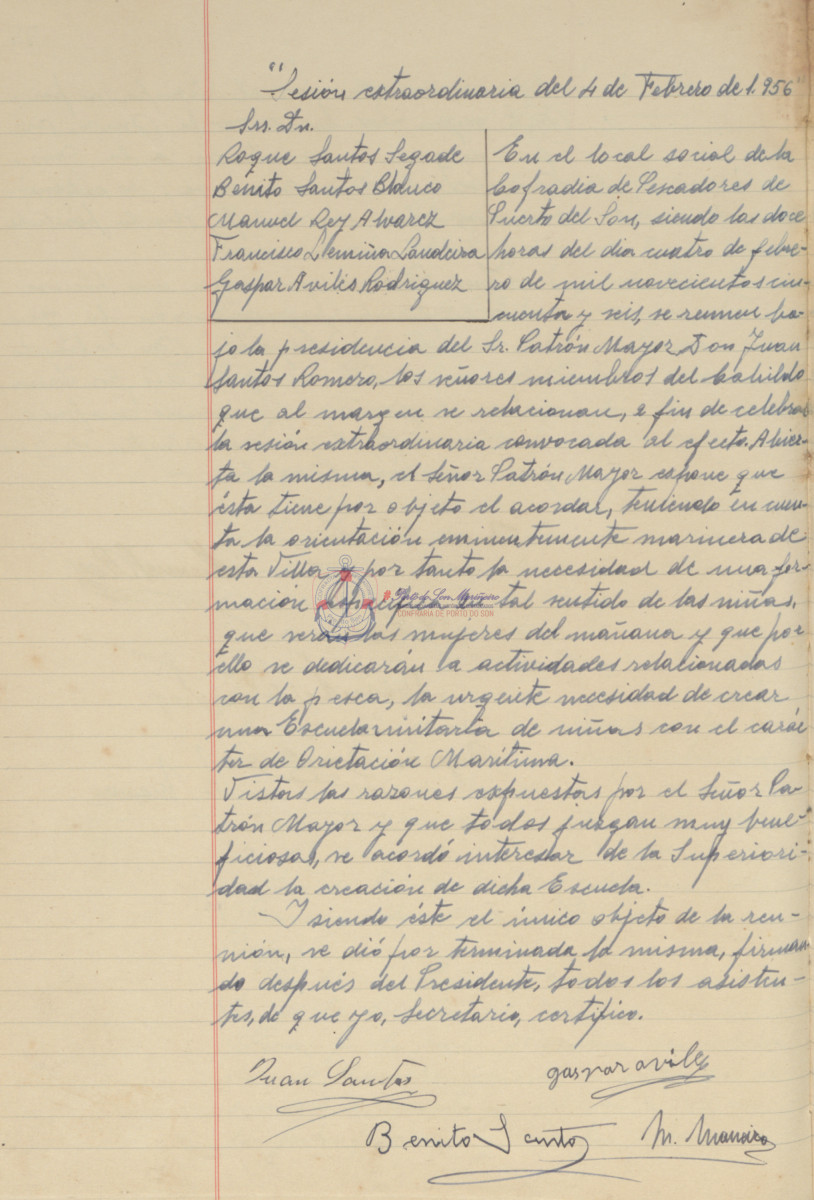 "Sesión extraordinaria del 4 de Febrero de 1.956"
Srs. Dn.
Roque Santos Segade
Benito Santos Blanco
Manuel Rey Alvarez
Francisco Llemiña Landeira
Gaspar Avilés Rodriguez
En el local social de la
Cofradia de Pescadores de
Puerto del Son, siendo las doce
horas del dia cuatro de febre-
ro de mil novecientos cin-
cuenta y seis, se reunen ba-
jo la presidencia del Sr. Patrón Mayor Don Juan
Santos Romero, los señores miembros del Cabildo
que al margen se relacionan, a fin de celebrar
la sesión extraordinaria convocada al efecto. Abier-
ta la misma, el Señor Patrón Mayor expone que
ésta tiene por objeto el acordar, teniendo en cuen-
ta la orientación eminentemente marinera de
esta Villa y por tanto la necesidad de una for-
mación en tal sentido de las niñas,
que serán las mujeres del mañana y que por
ello se dedicarán a actividades relacionadas
con la pesca, la urgente necesidad de crear
una Escuela unitaria de niñas con el carác
ter de Orietación Marítima.
Vistas las razones expuestas por el Señor Pa-
trón Mayor y que todos juzgan muy bene-
ficiosas, se acordó interesar de la Superiori-
dad la creación de dicha Escuela.
Y siendo éste el único objeto de la reu-
nión, se dió por terminada la misma, firman-
do después del Presidente, todos los asisten-
tes, de que yo, Secretario, certifico.
Porto do Son Mariñeiro
CONFRARÍA DE PORTO DO SON
Juan Santos
gaspar aviles
Benito Santos
M.